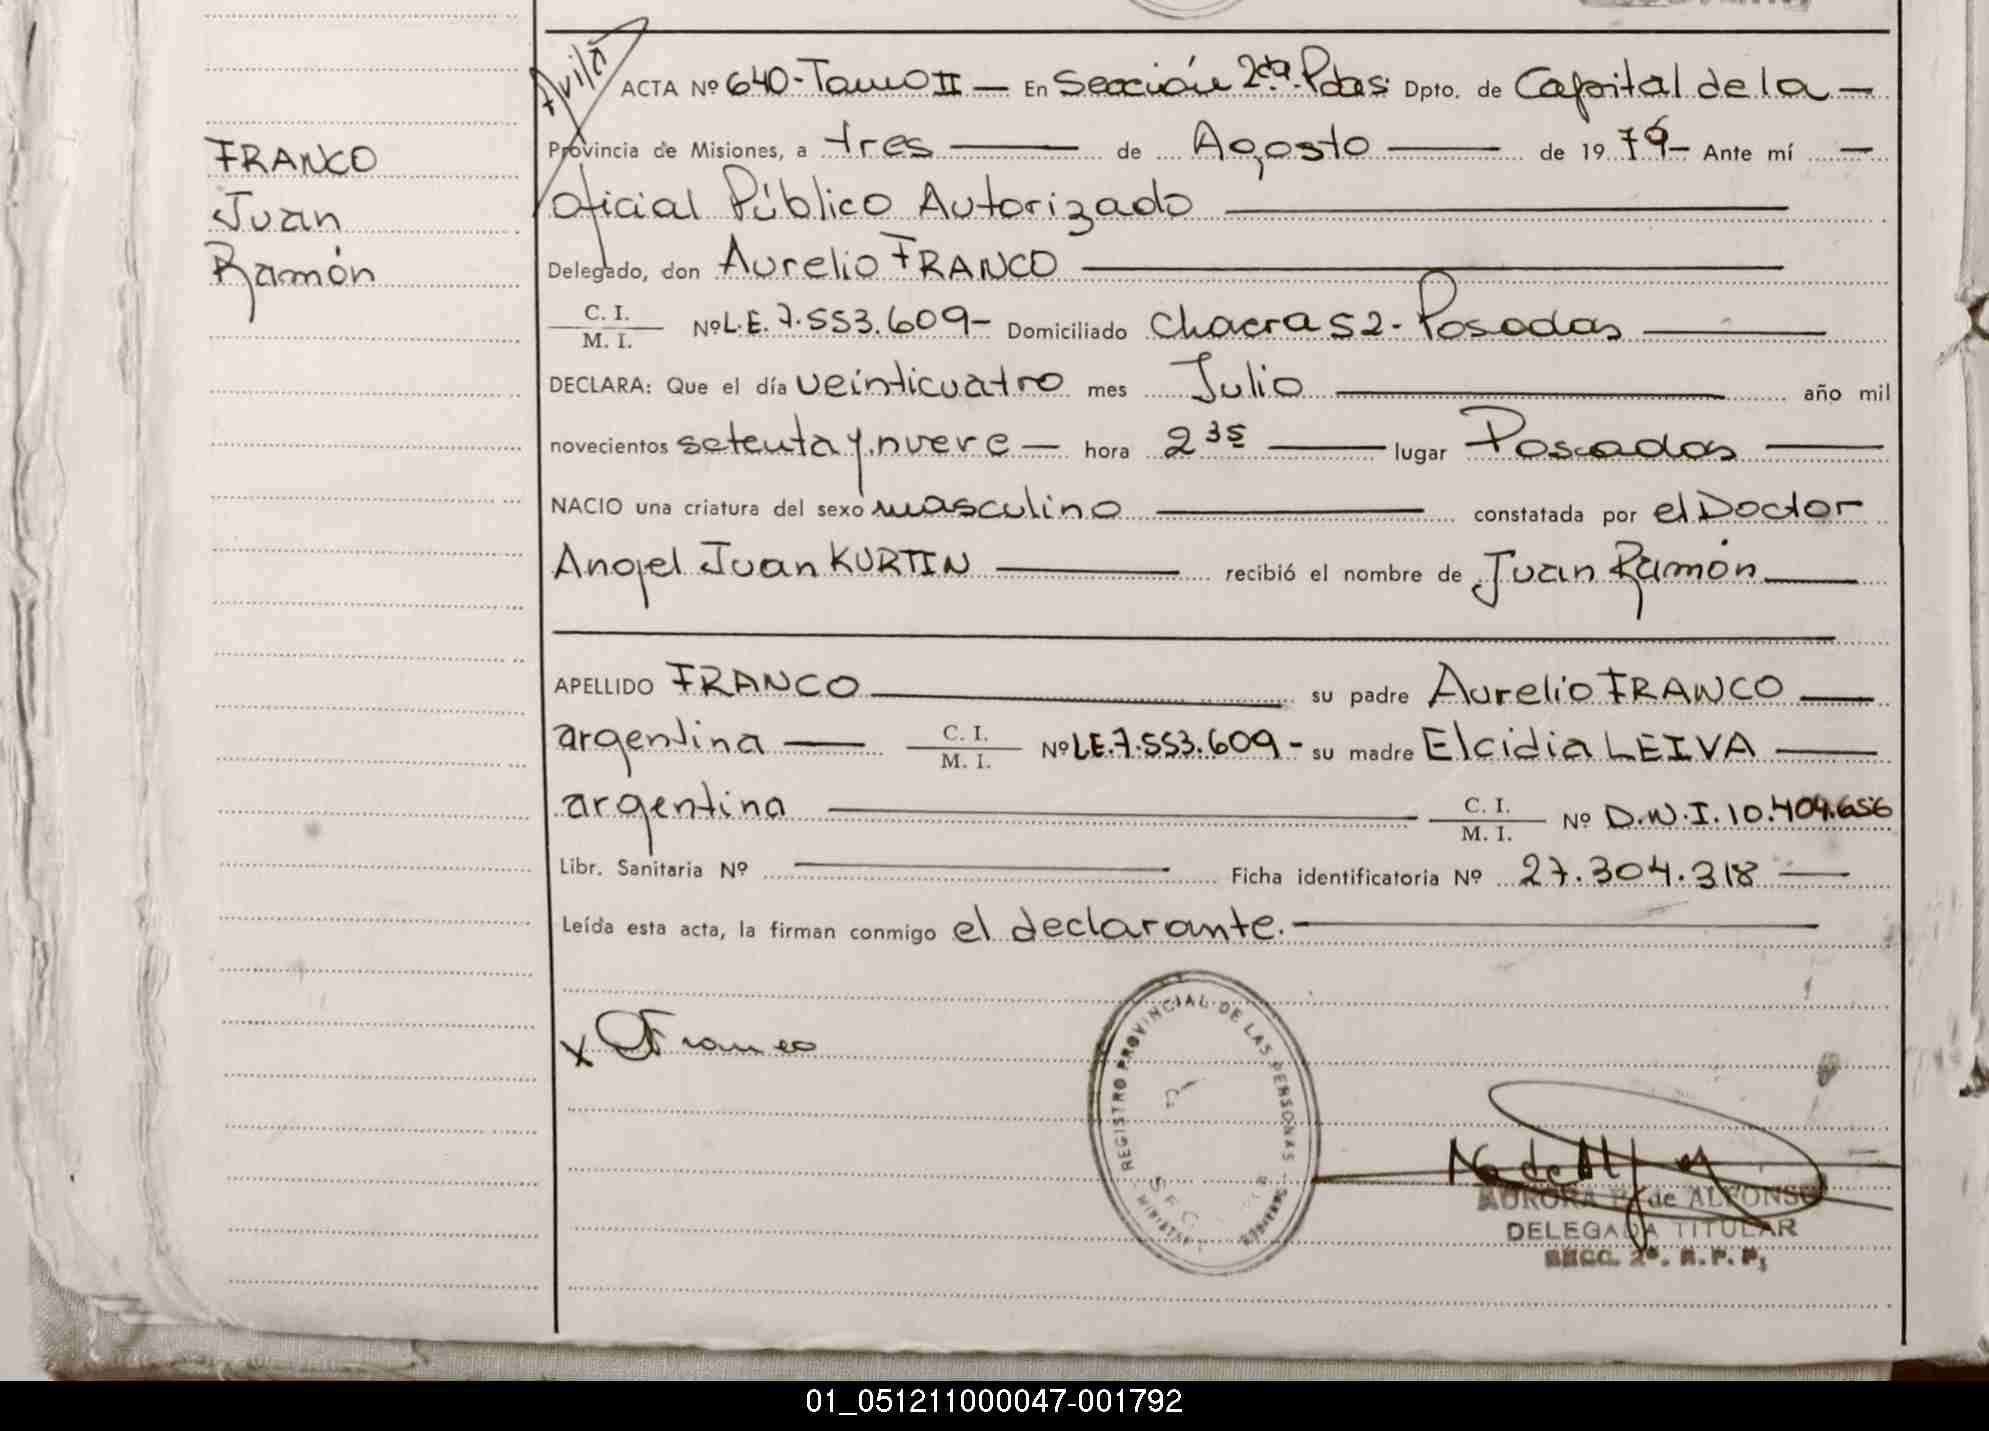 Avila
ACTA Nº 640-Tomo II — En Sección 2da. Pdas. Dpto. de Capital de la —
FRANCO
Juan
Ramón
Provincia de Misiones, a tres — de Agosto — de 1979- Ante mí —
Oficial Público Autorizado —
Delegado, don Aurelio FRANCO —
C. I.
M. I. Nº L.E. 7.553.609- Domiciliado Chacra 52 - Posadas —
DECLARA: Que el día veinticuatro mes Julio — año mil
novecientos setenta y nueve — hora 2 35 — lugar Posadas —
NACIO una criatura del sexo masculino — constatada por el Doctor
Angel Juan KURTIN — recibió el nombre de Juan Ramón —
APELLIDO FRANCO — su padre Aurelio FRANCO —
argentina — C. I.
M. I. Nº L.E. 7.553.609 - su madre Elcidia LEIVA —
argentina — C. I.
M. I. Nº D.N.I. 10.409.656
Libr. Sanitaria Nº — Ficha identificatoria Nº 27.304.318 —
Leída esta acta, la firman conmigo el declarante. —
x Franco
REGISTRO PROVINCIAL DE LAS PERSONAS
AURORA de ALFONSO
DELEGADA TITULAR
SECC. 2ª. R. P. P.
01_051211000047-001792